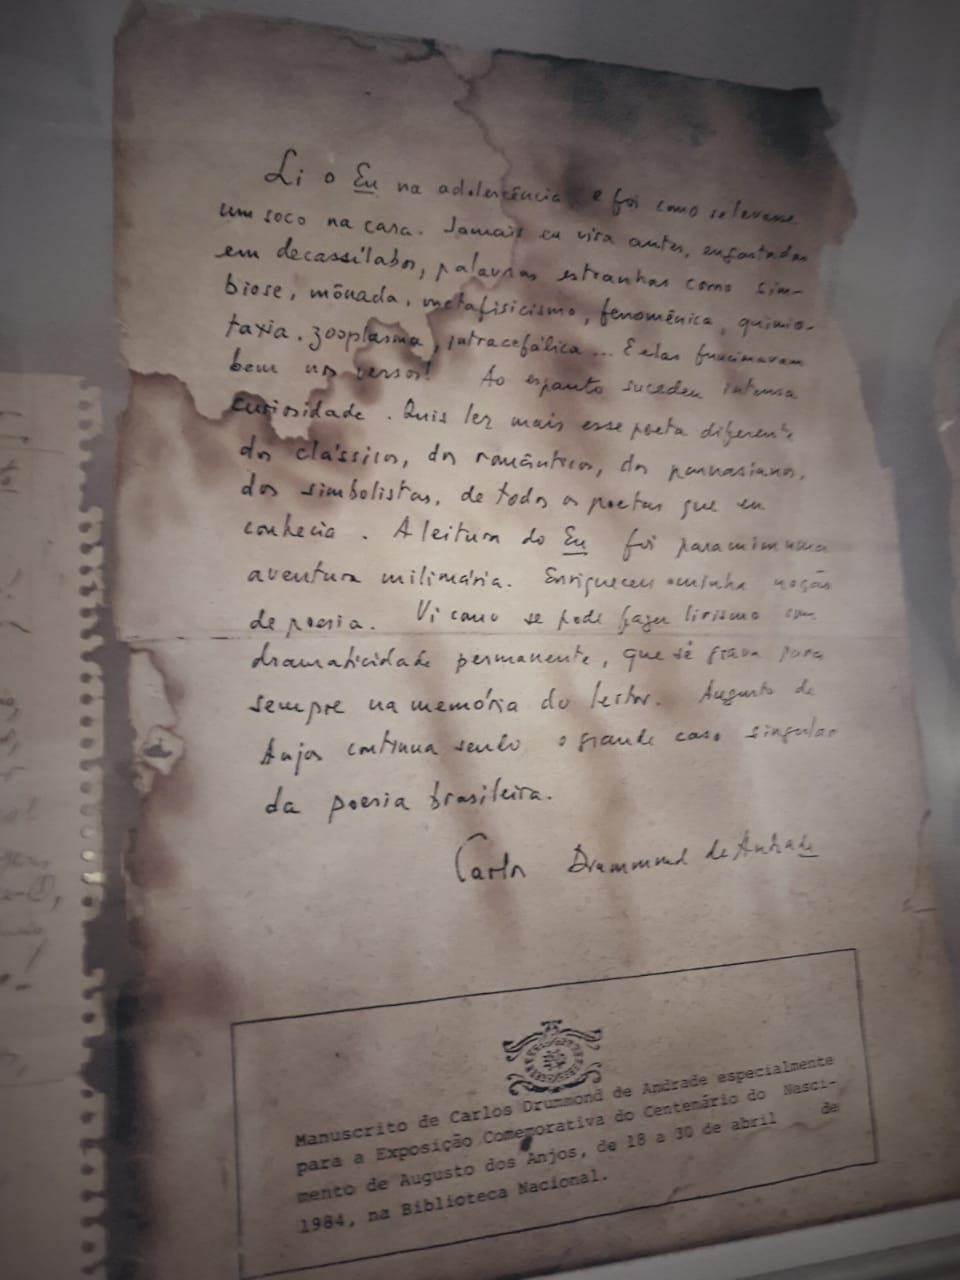 Li o Eu na adolescência e foi como se levasse
um soco na cara. Jamais eu vira antes, engastadas
em decassílabos, palavras estranhas como sim-
biose, mônada, metafisicismo, fenomênica, quimio-
taxia, zooplasma, intracefálica... E elas funcionavam
bem nos versos! Ao espanto sucedeu intensa
curiosidade. Quis ler mais esse poeta diferente
dos clássicos, dos românticos, dos parnasianos,
dos simbolistas, de todos os poetas que eu
conhecia. A leitura do Eu foi para mim uma
aventura milionária. Enriqueceu a minha noção
de poesia. Vi como se pode fazer lirismo com
dramaticidade permanente, que se grava para
sempre na memória do leitor. Augusto dos
Anjos continua sendo o grande caso singular
da poesia brasileira.
Carlos Drummond de Andrade
Manuscrito de Carlos Drummond de Andrade especialmente
para a Exposição Comemorativa do Centenário do Nasci-
mento de Augusto dos Anjos, de 18 a 30 de abril de
1984, na Biblioteca Nacional.